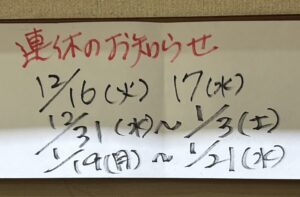 連休のお知らせ
12/16(火) 17(水)
12/31(水)～1/3(土)
1/19(月)～1/21(水)